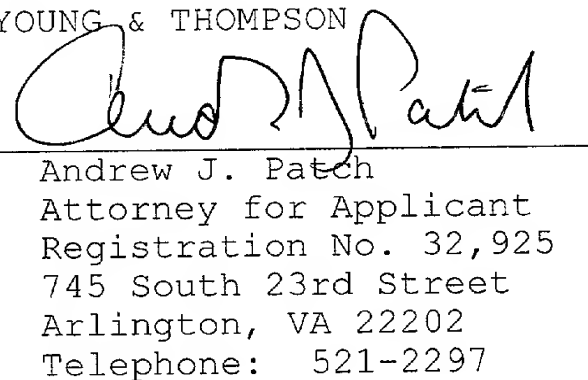 YOUNG & THOMPSON
Andrew J. Patch
Andrew J. Patch
Attorney for Applicant
Registration No. 32,925
745 South 23rd Street
Arlington, VA 22202
Telephone: 521-2297